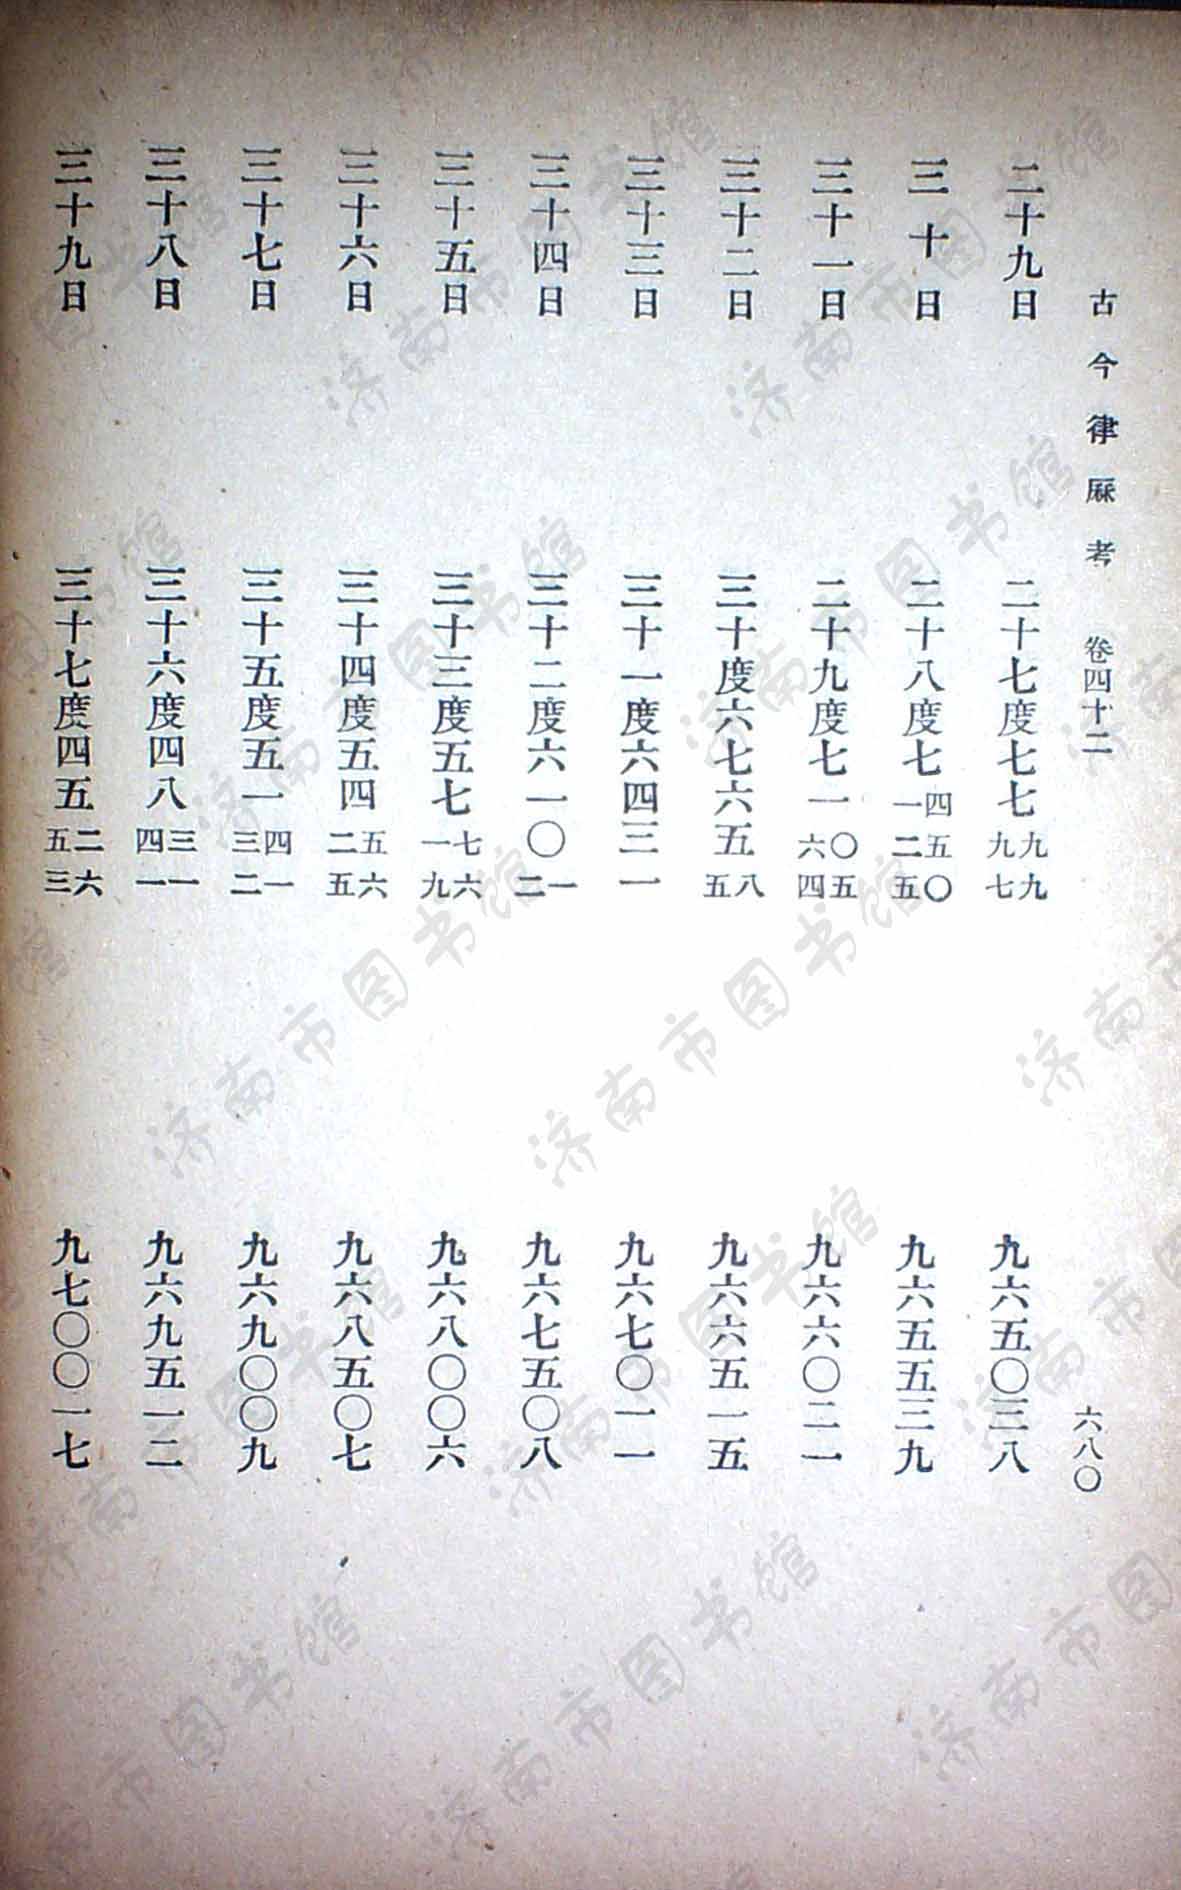 古今律厤考　卷四十二　六八〇
二十九日　二十七度七七九九九七　九六五〇三八
三十日　二十八度七四五〇一二五　九六五五三九
三十一日　二十九度七一〇五六四　九六六〇二一
三十二日　三十度六七六五八五　九六六五一五
三十三日　三十一度六四三一　九六七〇一一
三十四日　三十二度六一〇一二　九六七五〇八
三十五日　三十三度五七七六一九　九六八〇〇六
三十六日　三十四度五四五六二五　九六八五〇七
三十七日　三十五度五一四一三二　九六九〇〇九
三十八日　三十六度四八三一四一　九六九五一二
三十九日　三十七度四五二六五三　九七〇〇一七
济南市图书馆